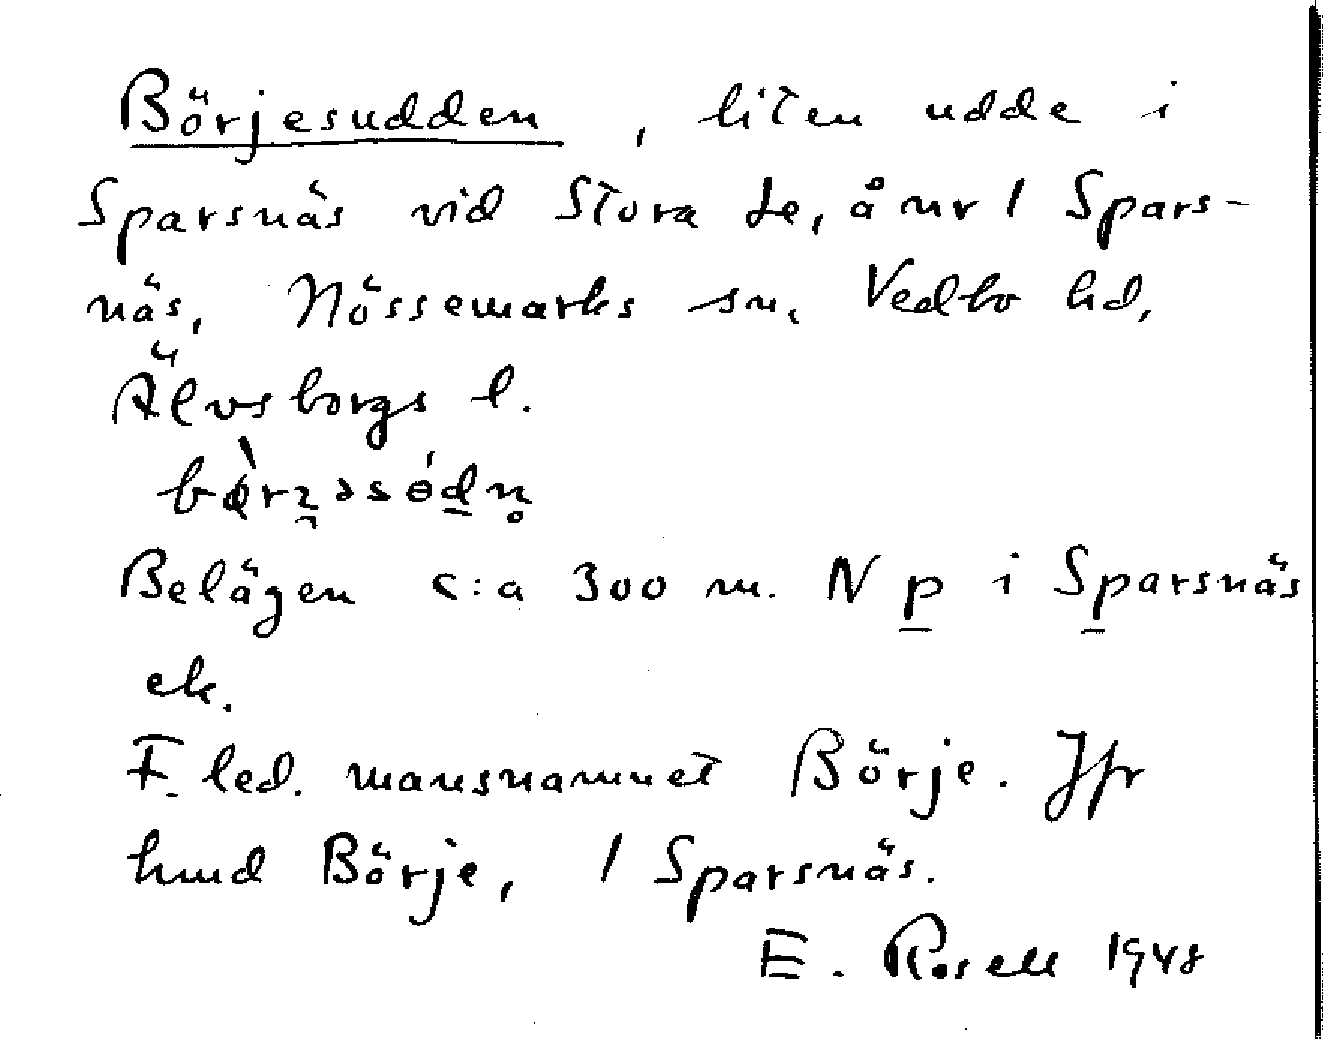 Börjesudden, liten udde i
Sparsnäs vid Stora Le, å nr 1 Spars-
näs, Nössemarks sn, Vedbo hd,
Älvsborgs l.
Belägen c:a 300 m. N p i Sparsnäs
ek.
F. led. mansnamnet Börje. Jfr
hmd Börje, 1 Sparsnäs.
E. Rosell 1948